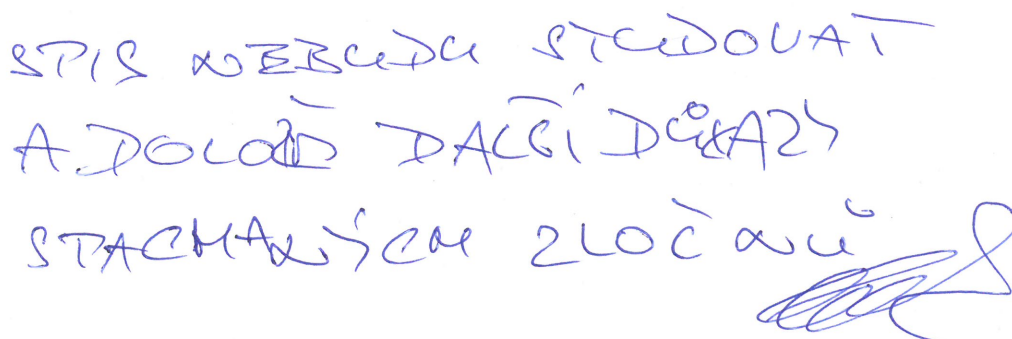 SPIS NEBUDU STUDOVAT
A DALŠÍ DŮKAZY
SPACHANÝCH ZLOČNŮ